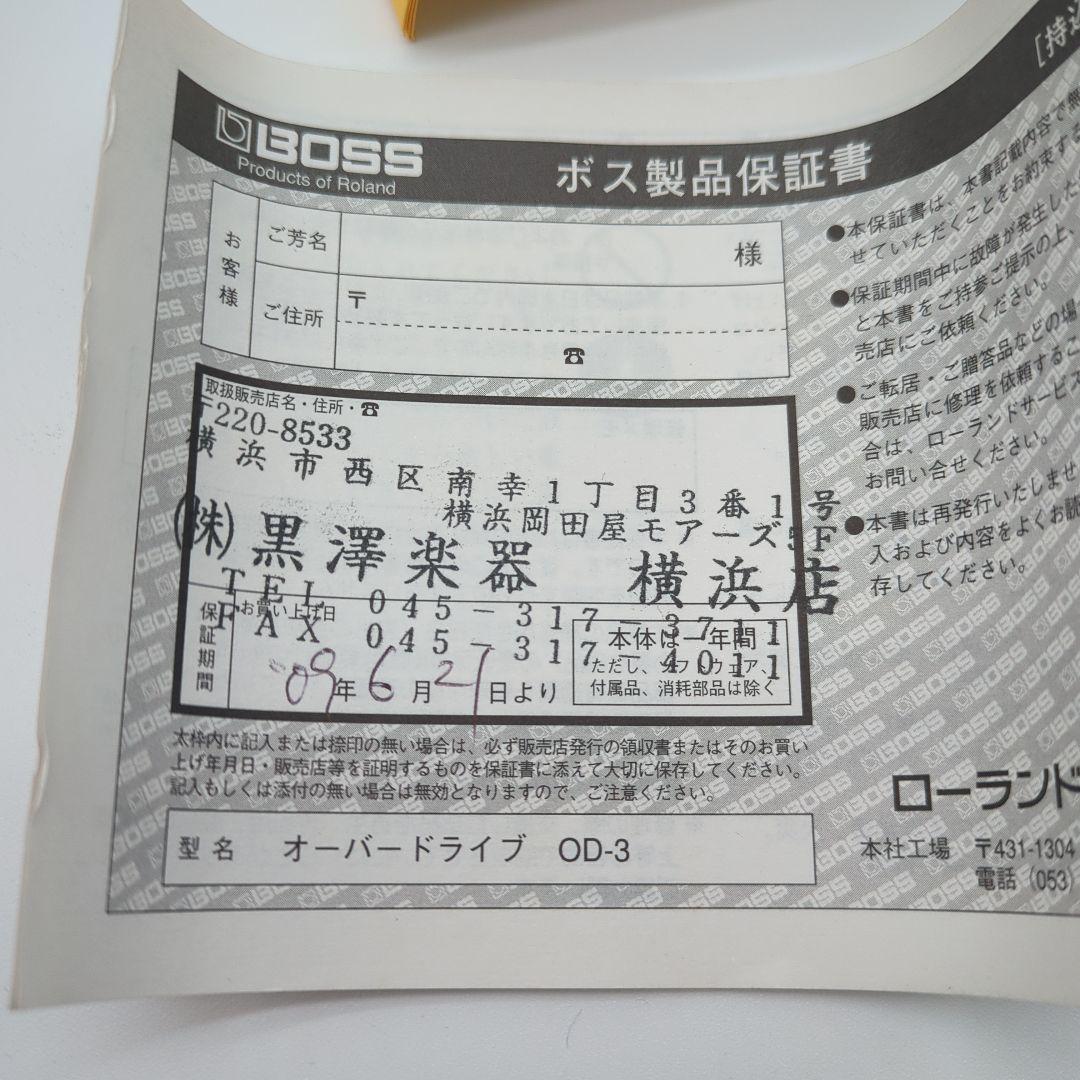 BOSS
Products of Roland
ボス製品保証書
[持込
お客様
ご芳名
様
ご住所
〒
☎
取扱販売店名・住所・☎
〒220-8533
横浜市西区南幸1丁目3番1号
横浜岡田屋モアーズ5F
(株)黒澤楽器 横浜店
TEL 045-317-3711
FAX 045-317-4011
保証期間
お買い上げ日
'09年6月27日より
本体は一年間
ただし、ソフトウェア、
付属品、消耗部品は除く
太枠内に記入または捺印の無い場合は、必ず販売店発行の領収書またはそのお買い
上げ年月日・販売店等を証明するものを保証書に添えて大切に保存してください。
記入もしくは添付の無い場合は無効となりますので、ご注意ください。
型名 オーバードライブ OD-3
本書記載内容で無
●本保証書は、
せていただくことをお約束する
●保証期間中に故障が発生した
と本書をご持参ご提示の上、
売店にご依頼ください。
●ご転居・ご贈答品などの場
販売店に修理を依頼するこ
合は、ローランドサービス
お問い合せください。
●本書は再発行いたしませ
入および内容をよくお読
存してください。
ローランド
本社工場 〒431-1304
電話 (053)